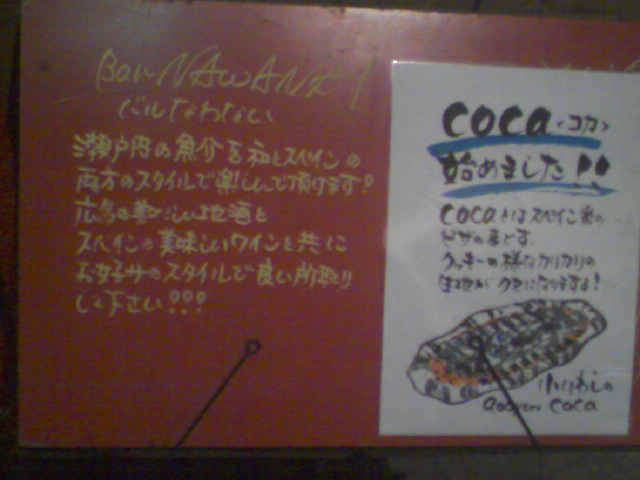 Bar NAWANAY
バルなわない
瀬戸内の魚介を和とスペインの
両方のスタイルで楽しんで頂けます!
広島の美味しい地酒と
スペインの美味しいワインと共に
お好みのスタイルで良い所取り
して下さい!!!
coca<コカ>
始めました!!
cocaとはスペイン番の
ピザの事です。
クッキーの様なカリカリの
生地がクセになりますよ!
小いわしの
coca